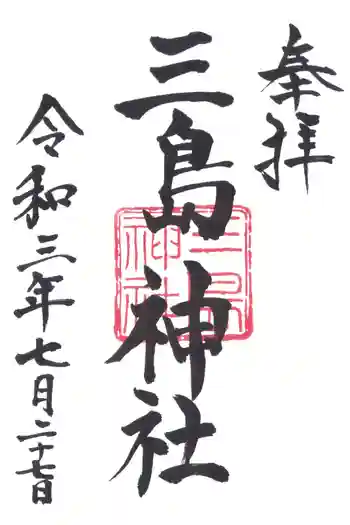 奉拝
三島神社
三島神社
令和三年七月二十七日